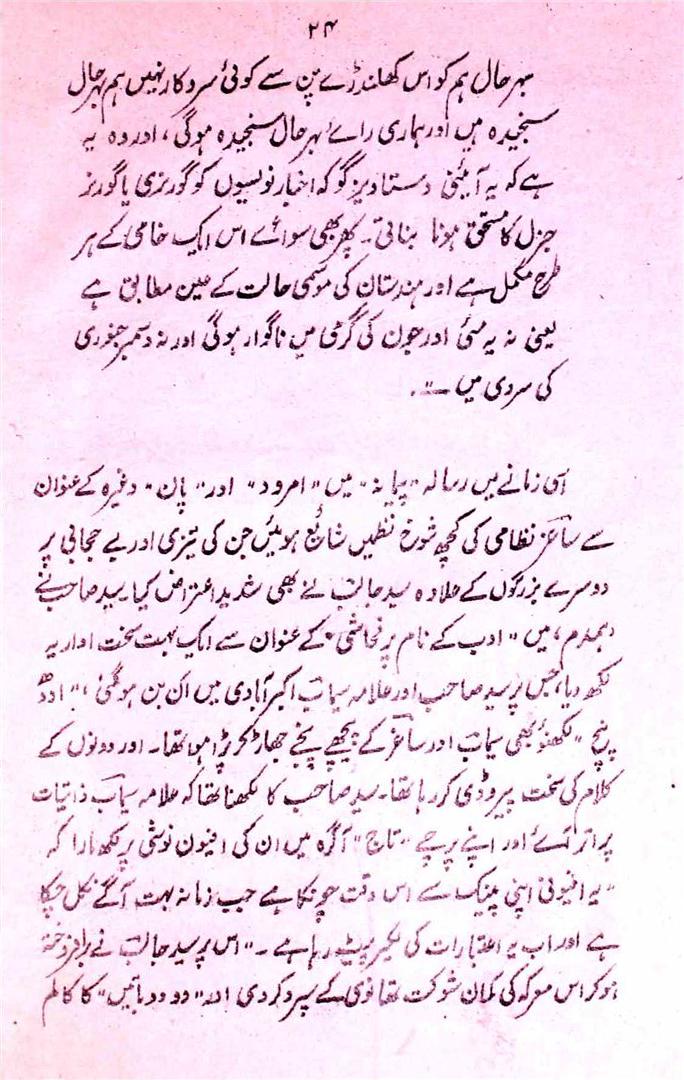 ۲۴
بہرحال ہم کو اس کھلنڈرے پن سے کوئی سروکار نہیں ہم بہرحال
سنجیدہ ہیں اور ہماری رائے بہرحال سنجیدہ ہوگی، اور وہ یہ
ہے کہ یہ آئینی دستاویز گو کہ اخبار نویسوں کو گورنری یا گورنر
جنرل کا مستحق ہونا بناتی۔ پھر بھی سوائے اس ایک خامی کے ہر
طرح مکمل ہے اور ہندستان کی موسمی حالت کے عین مطابق ہے
یعنی نہ یہ مئی اور جون کی گرمی میں ناگوار ہوگی اور نہ دسمبر جنوری
کی سردی میں ــ"۔
اسی زمانے میں رسالہ "پیمانہ" میں "امرود" اور "پان" وغیرہ کے عنوان
سے ساغر نظامی کی کچھ شوخ نظمیں شائع ہوئیں جن کی تیزی اور بے حجابی پر
دوسرے بزرگوں کے علاوہ سید جالب نے بھی شدید اعتراض کیا۔ سید صاحب نے
ہمدم، میں "ادب کے نام پر فحاشی" کے عنوان سے ایک بہت سخت اداریہ
لکھ دیا، جس پر سید صاحب اور علامہ سیماب اکبرآبادی میں ان بن ہوگئی، "اودھ
پنچ" لکھنؤ بھی سیماب اور ساغر کے پیچھے پنجے جھاڑ کر پڑا ہوا تھا۔ اور دونوں کے
کلام کی سخت پیروڈی کر رہا تھا۔ سید صاحب کا لکھنا تھا کہ علامہ سیماب ذاتیات
پر اتر آئے اور اپنے پرچے "تاج" آگرہ میں ان کی افیون نوشی پر لکھ مارا کہ
"یہ افیونی اپنی پینک سے اس وقت چونکا ہے جب زمانہ بہت آگے نکل چکا
ہے اور اب یہ اعتبارات کی لکیر پیٹ رہا ہے۔" اس پر سید جالب نے برافروختہ
ہوکر اس معرکہ کی کمان شوکت تھانوی کے سپرد کردی اور "دو دو باتیں" کا کالم